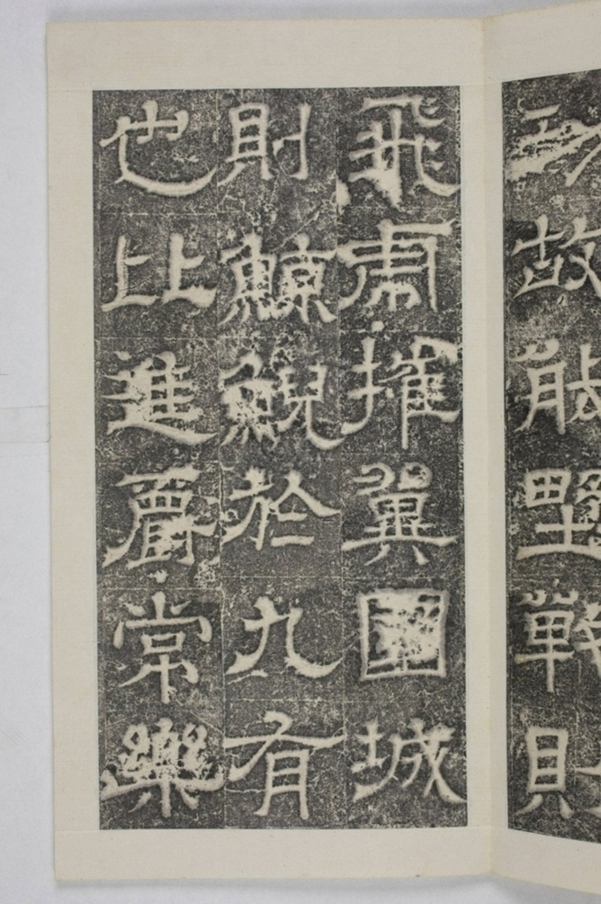 故能野戰則
飛虎摧翼圍城
則鯨鯢於九有
也比進爵常樂